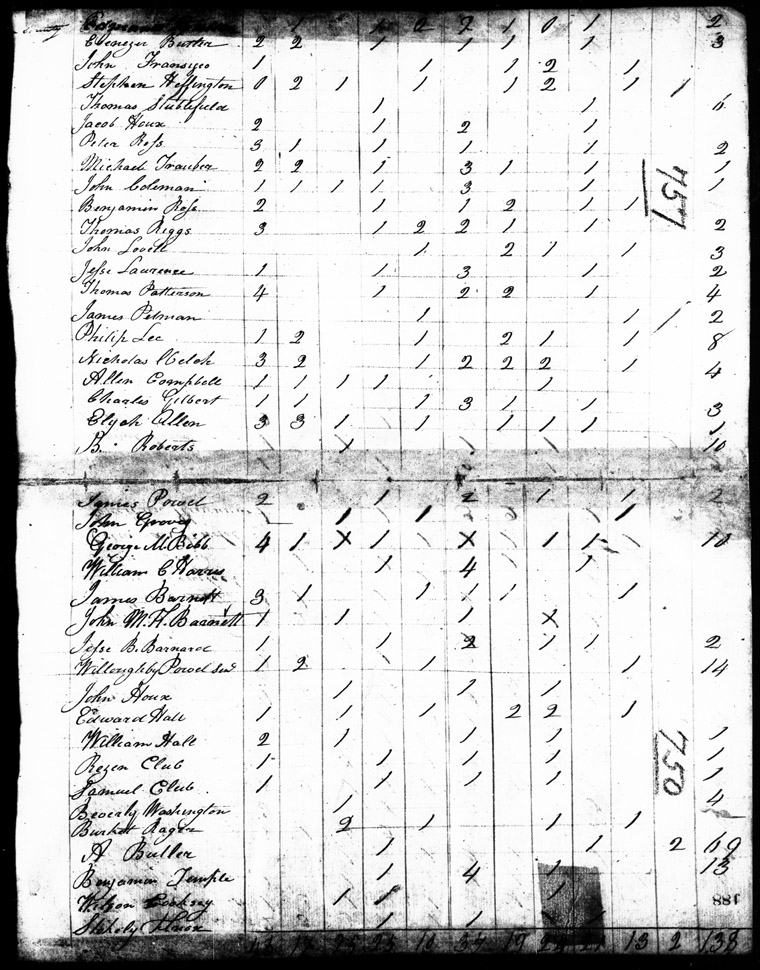 1 2 7 1 0 1 2
Ebenezer Burter 2 2 1 1 1 1 1 3
John Fransisco 1 1 1 2 1
Stephen Heffington 0 2 1 1 1 2 1 1
Thomas Stublefield 1 1
Jacob Houx 2 1 2 1
Peter Ross 3 1 1 1 1 2
Michael Trauber 2 2 1 3 1 1 1
John Coleman 1 1 1 1 3 1 1
Benjamin Rose 2 1 1 2 1 1
Thomas Riggs 3 1 2 2 1 1 2
John Lovell 1 2 1 1 3
Jesse Laurence 1 1 3 1 2
Thomas Patterson 4 1 2 2 1 4
757
James Pitman 1 1 1 2
Philip Lee 1 2 1 2 1 1 8
Nicholas Welch 3 2 1 2 2 2 1 4
Allen Campbell 1 1 1 1 1
Charles Gilbert 1 1 1 3 1 1 3
Elijah Allen 3 3 1 1 1 1 1 1
B. Roberts 1 X 1 1 10
James Powel 2 1 2 1 1 2
John Groves 1 1 1
George M. Bibb 4 1 X 1 X 1 1 10
William C Harris 1 4 1
James Barnett 3 1 1 1 1 1
John M. H. Barnett 1 1 1 X
Jesse B. Barnard 1 1 2 1 1 2
Willoughby Powel Senr 1 2 1 1 14
John Houx 1 1 1
Edward Hall 1 1 1 2 2 1
William Hall 2 1 1 1 1
Rezen Club 1 1 1 1 1
Samuel Club 1 1 1 1 1
750
Beverly Washington 1 4
Burket Rager 2 1 1 1
A Butler 1 1 2 69
Benjamin Temple 1 4 1 13
Wilson 1 1 1
1 1 1 1
881
2 138